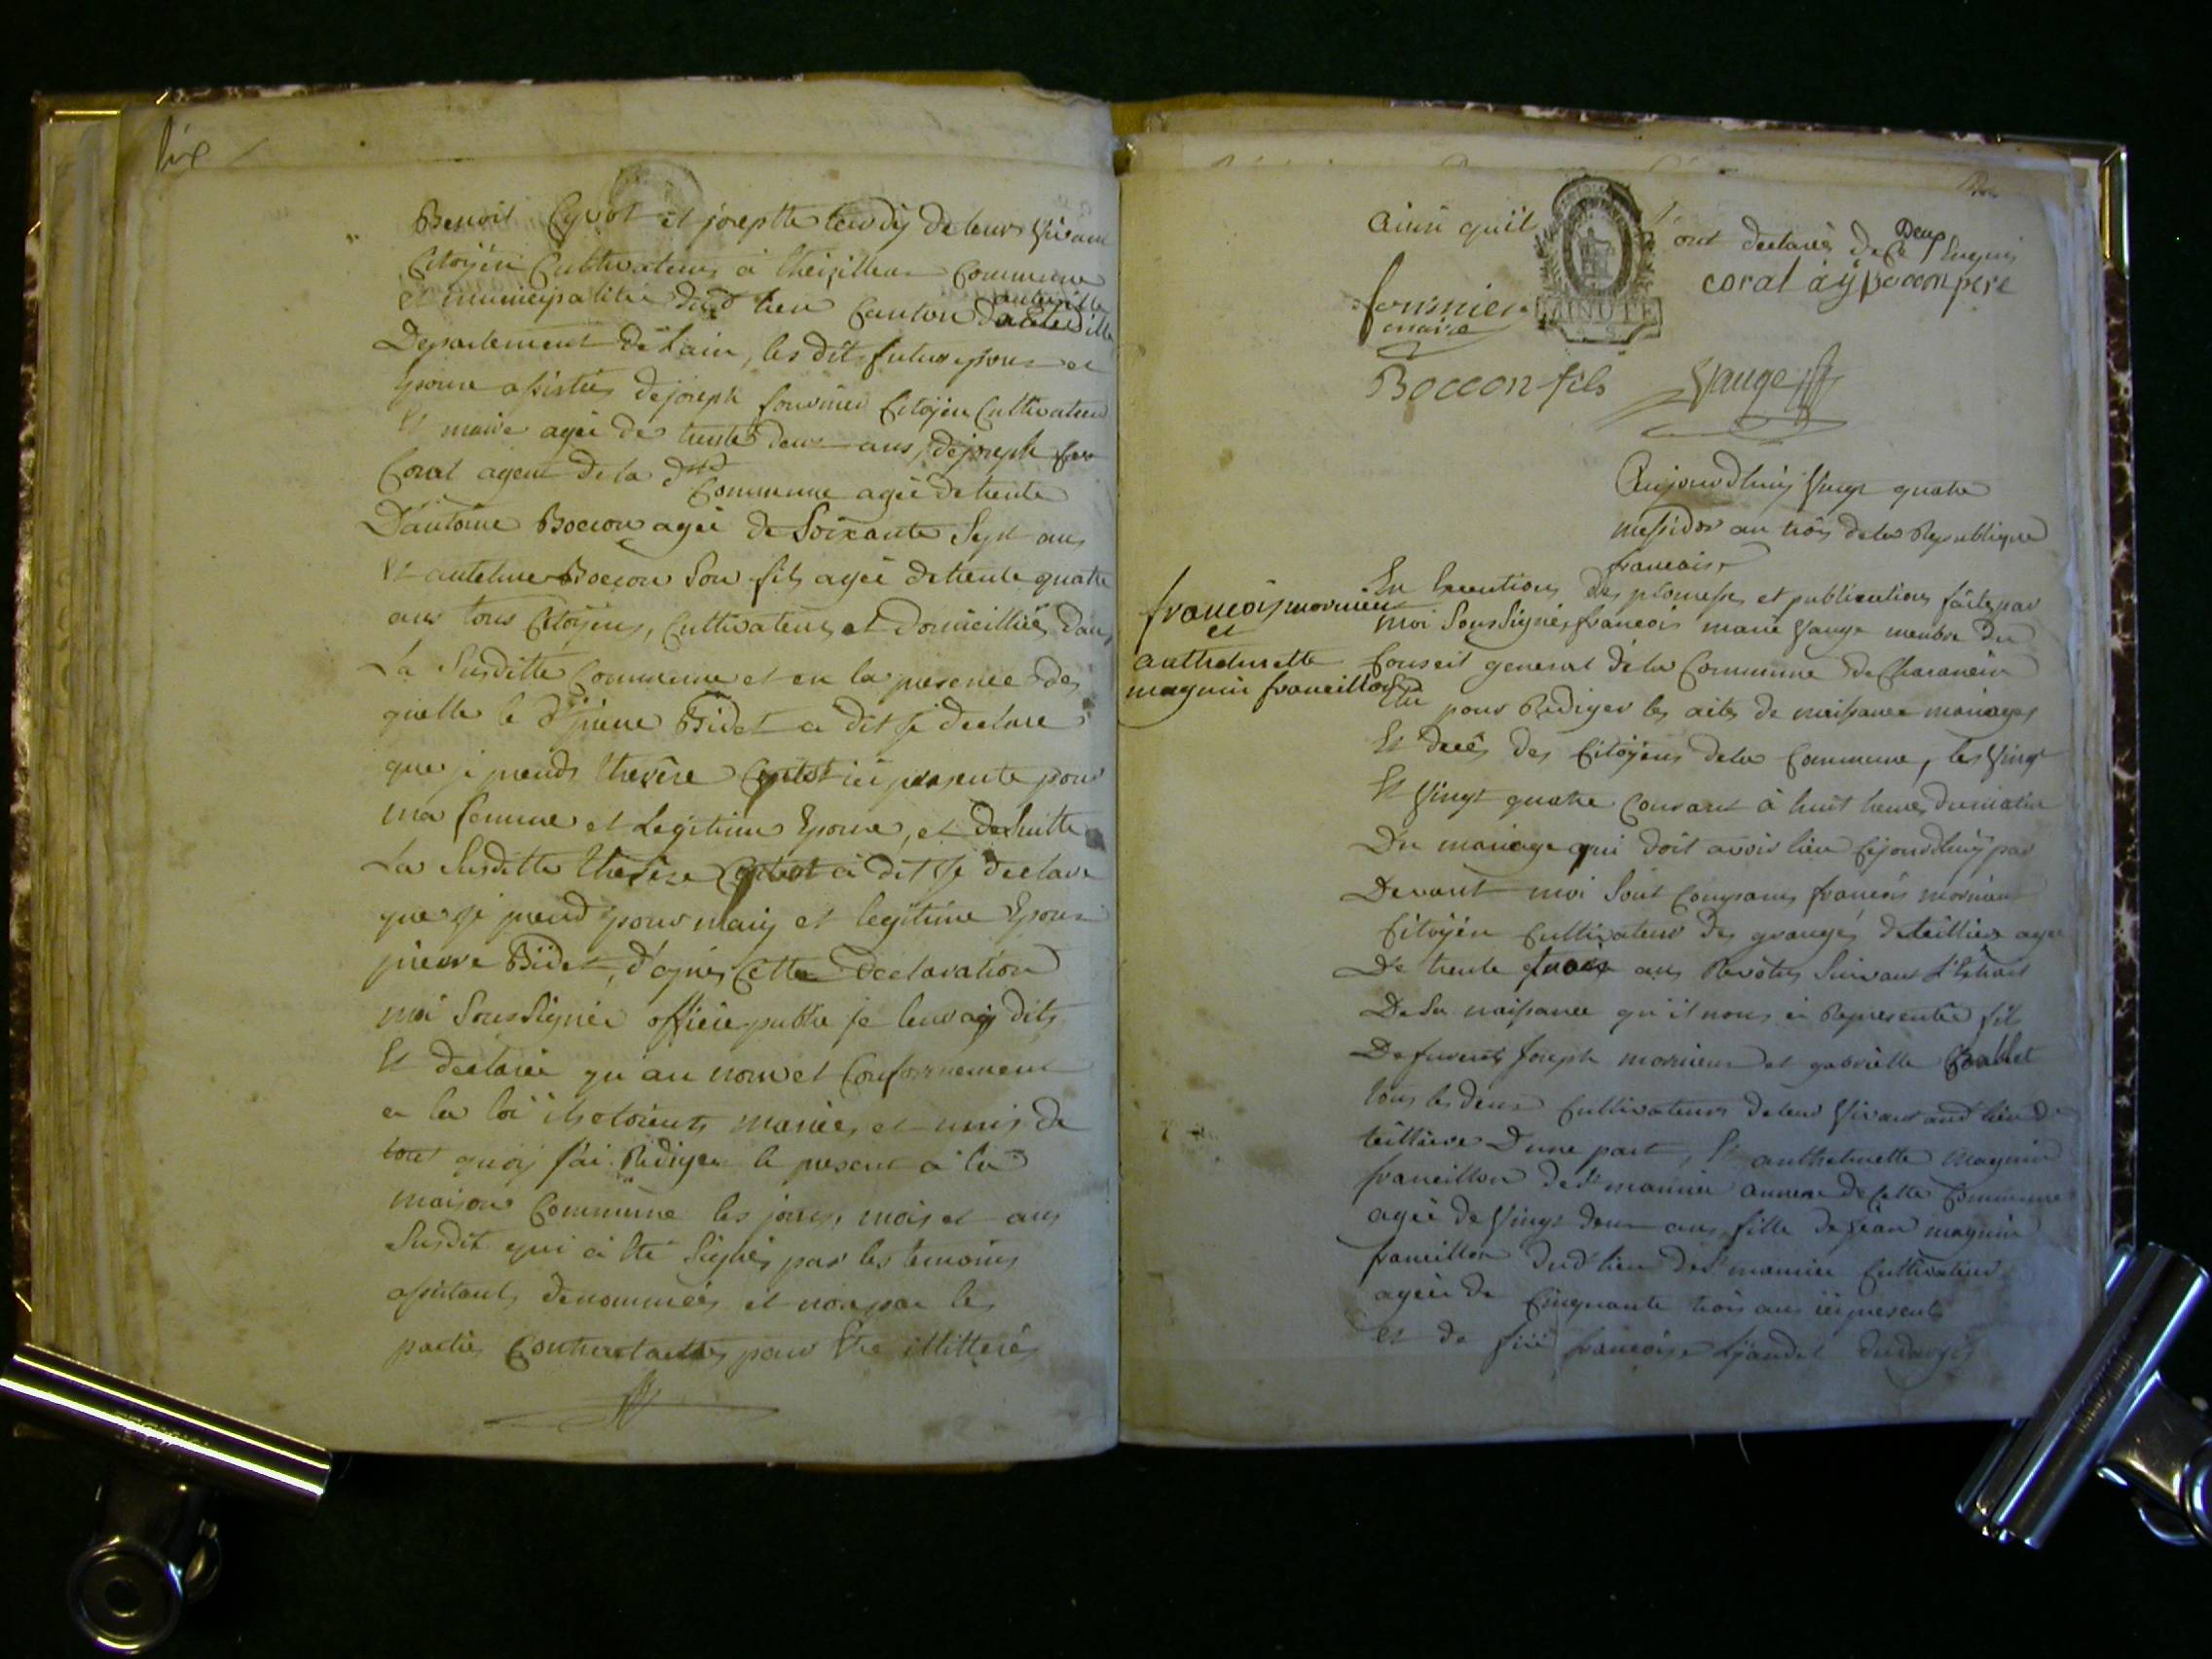 Benoit Cyvot et josephte tardy de leurs vivant
Citoyen Cultivateurs à theizillieu Commune
et municipalitée dud lieu Canton d'auteville
Departement de Lain, les dits futurs epoux et
Epouse assistées de joseph fournier Citoyen Cultivateur
Et maire agée de trente deux ans, de joseph
Corat agent de la dtte Commune agée de trente
D'antoine Boccon agée de Soixante Sept ans
Et antelme Boccon Son fils agée de trente quatre
ans tous Citoyens, Cultivateurs et domicilliés dans
La Susditte Commune et en la presence des
quelle le dt pierre Bidet a dit je declare
que je prends therese Cyvot ici presente pour
ma femme et Legitime Epouse, et de Suitte
La Susditte therese Cyvot à dit je declare
que je prend pour mary et legitime Epoux
pierre Bidet, d'apres Cette declaration
moi Sous Signée officie public je leur ay dits
Et declarée qu'au nom et Conformement
a la loi ils etoients mariés et unis de
tout quoy j'ai Rediger le present à la
maison Commune les jours, mois et ans
Susdit qui à été Signés par les temoins
assistants denommées et non par les
parties Contractantes pour Etre illitteré
ainsi quil l'ont declarés de Ce Deux Enquis
corat ay Bocconpere
fournier
maire
MINUTE
Boccon fils Vauge
Aujourdhuy Vingt quatre
messidor an trois de la Republique
francaise
francois mornieu
et
anthelmette
magnin francillon
En Execution des promesses et publications faites par
moi Sous Signé, francois marie Vauge membre du
Conseil general de la Commune de Charancin
Elu pour Rediger les actes de naissance mariages
Et decés des Citoyens de la Commune, les Vingt
Et Vingt quatre Courant à huit heures du matin
Du mariage qui doit avoir lieu Cejourdhuy par
Devant moi Sont Comparus francois mornieu
Citoyen Cultivateur des granges de teillier agé
De trente ans Revolus Suivant L'Extrait
De Sa naissance qu'il nous à Representée fils
De furents Joseph mornieux et gabrielle
tous les deux Cultivateurs de leur Vivant aud lieu de
teilliere D'une part, Et anthelmette Magnin
francillon de St maurice annexe de Cette Commune
agée de Vingt deux ans, fille de jean magnin
francillon dud lieu de St maurice Cultivateur
agée de Cinquante trois ans ici presents
et de francoise